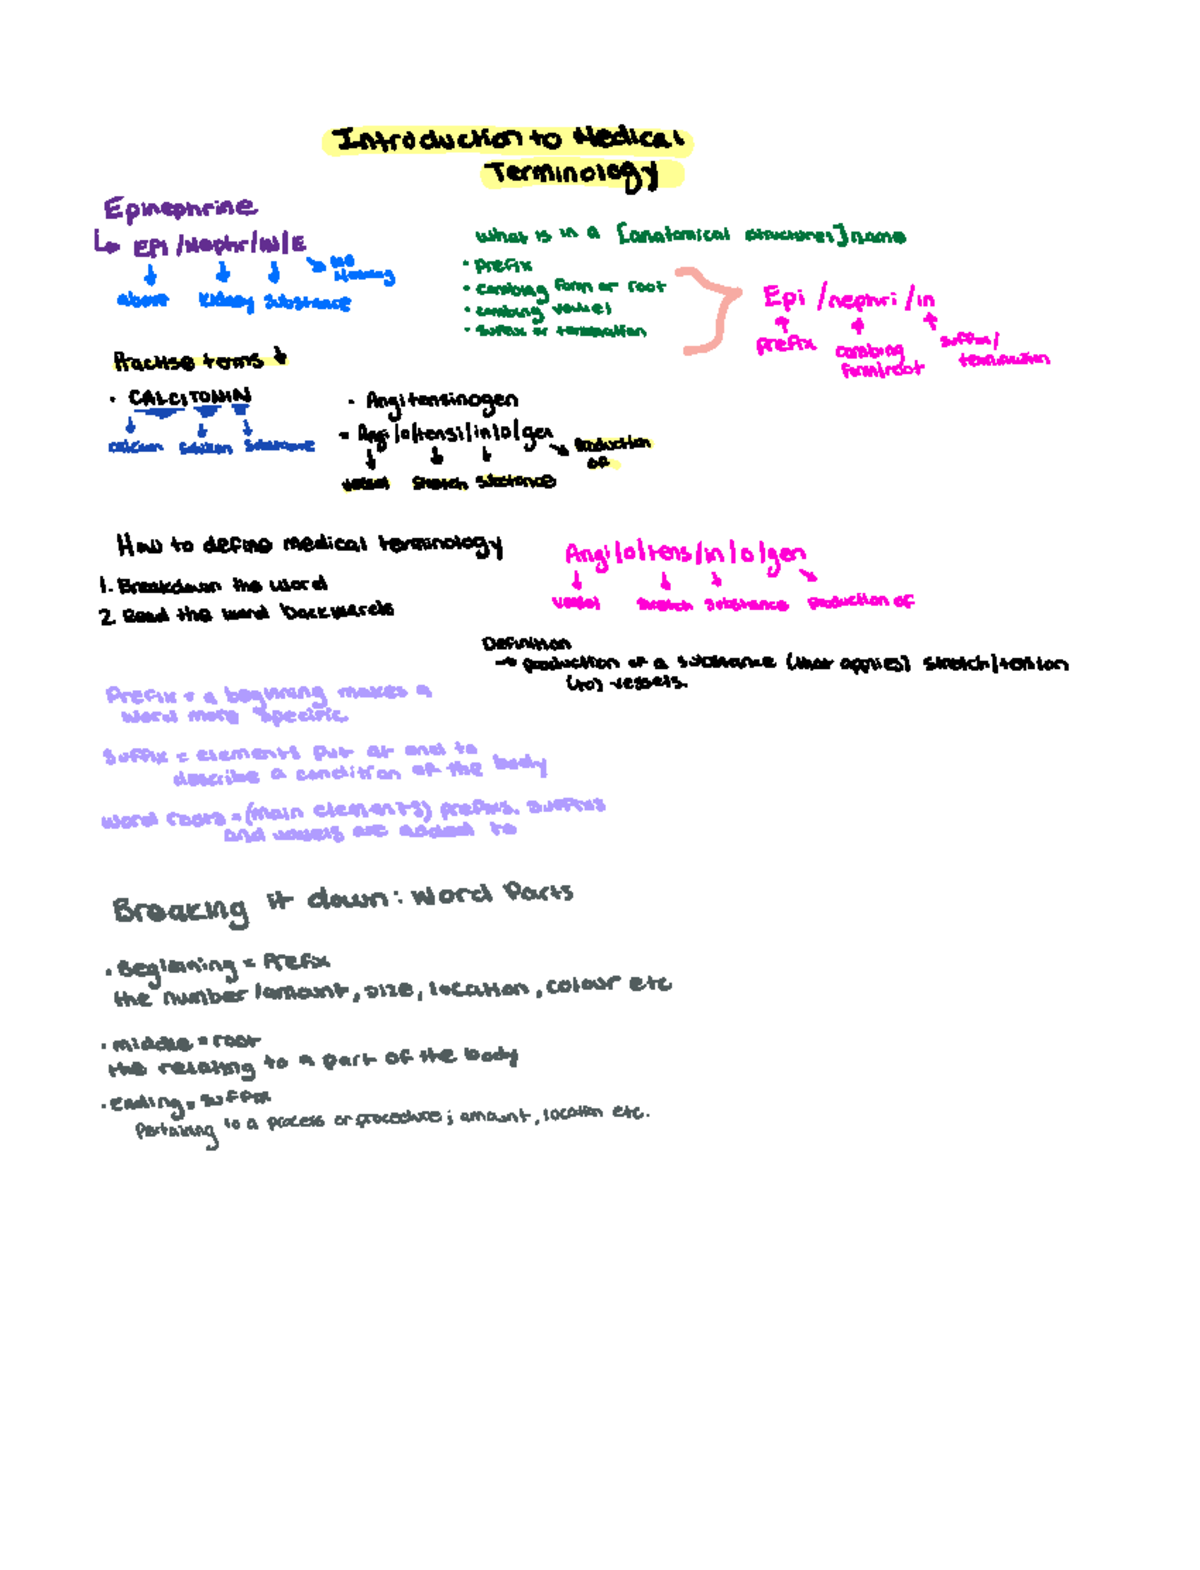 Introduction to Medical
Terminology
Epinephrine
↳ EPI /Nephr/IN/E
above kidney substance
NO
Meaning
What is in a [anatomical structures] name
• Prefix
• combing form or root
• combing vowel
• suffix or termination
Epi /nephri /in
prefix combing
form/root
suffix/
termination
Practise terms ↓
• CALCITONIN
calcium substance
• Angitensinogen
= Ang/o/tensi/in/o/gen
vessel stretch substance
Production
of
How to define medical terminology
1. Breakdown the word
2. Read the word backwards
Angi/o/tens/in/o/gen
vessel stretch substance production of
Definition
→ production of a substance (that applies) stretch/tention
(to) vessels.
Prefix = a beginning makes a
word more specific.
Suffix = elements put at end to
describe a condition of the body
Word roots = (main elements) prefixs, suffixs
and vowels are added to
Breaking it down: Word Parts
• Beginning = Prefix
the number /amount, size, location, colour etc
• middle = root
the relating to a part of the body
• Ending = suffix
Pertaining to a process or procedure; amount, location etc.